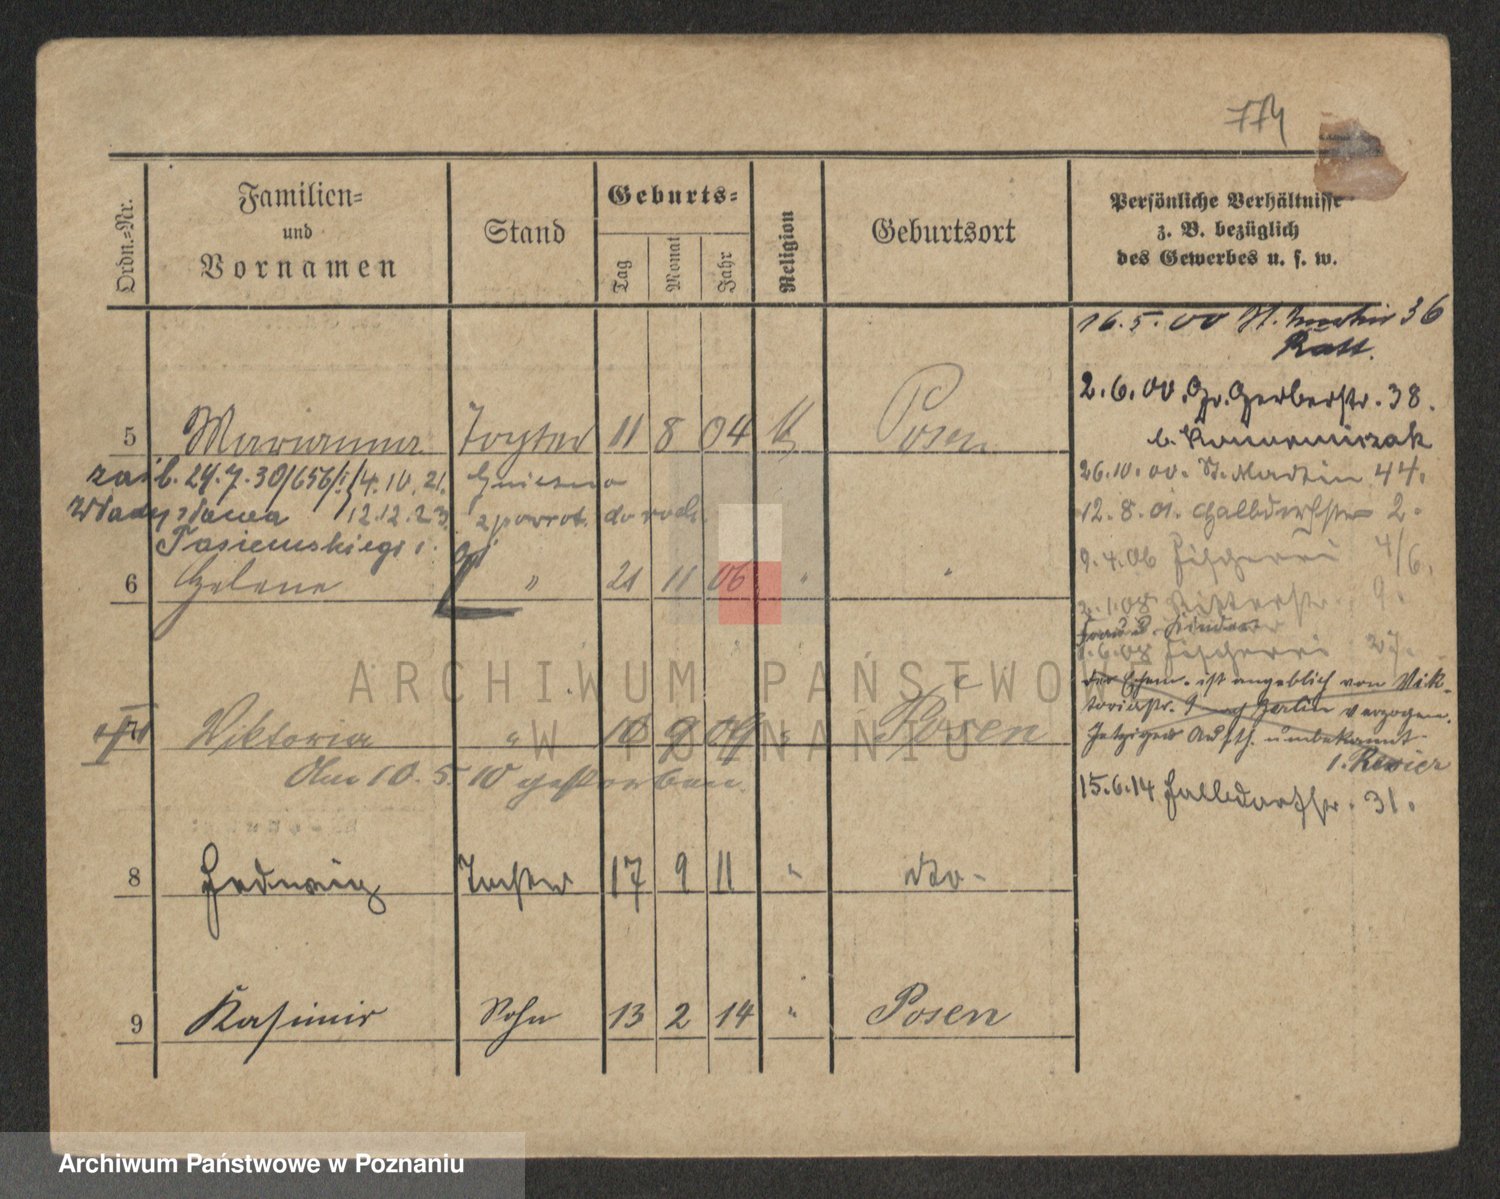 774
Ordn.-Nr.
Familien-
und
Vornamen
Stand
Geburts-
Tag
Monat
Jahr
Religion
Geburtsort
Persönliche Verhältnisse
z. B. bezüglich
des Gewerbes u. s. w.
16.5.00 St. Martin 36
2.6.00. Gr. Gerberstr. 38.
b.
26.10.00. St. Martin 44.
12.8.01. Halbdorfstr 2.
9.4.06 Fischerei 4/6.
2.1.08 9.
Frau u. Kinder
1.6.08 Fischerei 27.
Der Ehem. ist angeblich von Vik-
toriastr. 9 nach Berlin verzogen.
Jetziger Aufth. unbekannt
1. Revier
15.6.14 Halbdorfstr. 31.
5 Marianna Tochter 11 8 04 K Posen
zaśl. 24.7.30/656/ 4.10.21. Gniezno
Władysława 12.12.23. z powrot. do rodz.
Tasiemskiego
6 Helene " 21 11 06 " "
7 Viktoria " 10 9 09 " Posen
Am 10.5.10 gestorben.
8 Hedwig Tochter 17 9 11 " Do-
9 Kasimir Sohn 13 2 14 " Posen
ARCHIWUM PAŃSTWOWE
W POZNANIU
Archiwum Państwowe w Poznaniu